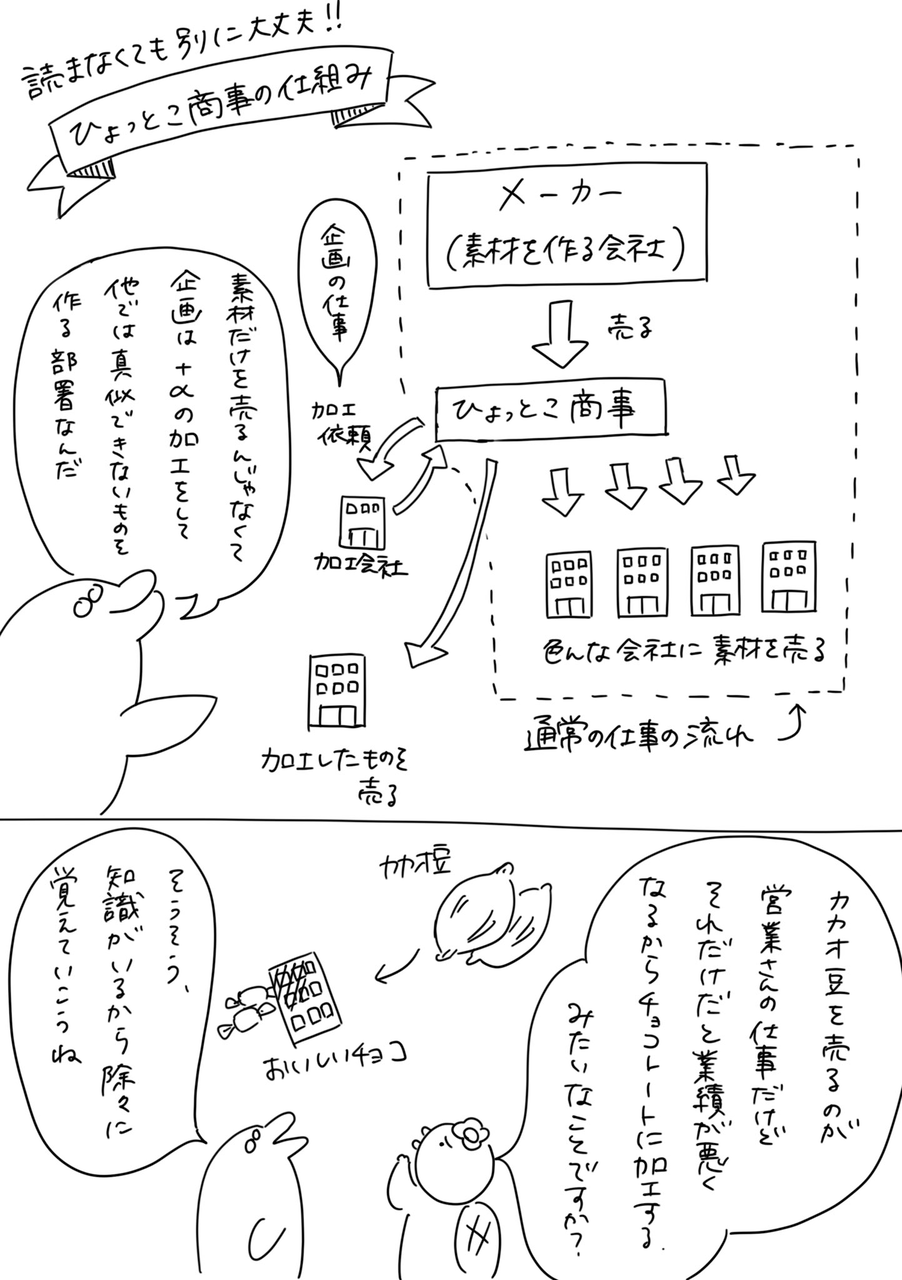 読まなくても別に大丈夫!!
ひょっとこ商事の仕組み
メーカー
(素材を作る会社)
売る
ひょっとこ商事
色んな会社に素材を売る
通常の仕事の流れ
企画の仕事
加工
依頼
加工会社
加工したものを
売る
素材だけを売るんじゃなくて
企画は+αの加工をして
他では真似できないものを
作る部署なんだ
カカオ豆を売るのが
営業さんの仕事だけど
それだけだと業績が悪く
なるからチョコレートに加工する
みたいなことですか?
カカオ豆
おいしいチョコ
そうそう、
知識がいるから除々に
覚えていこうね